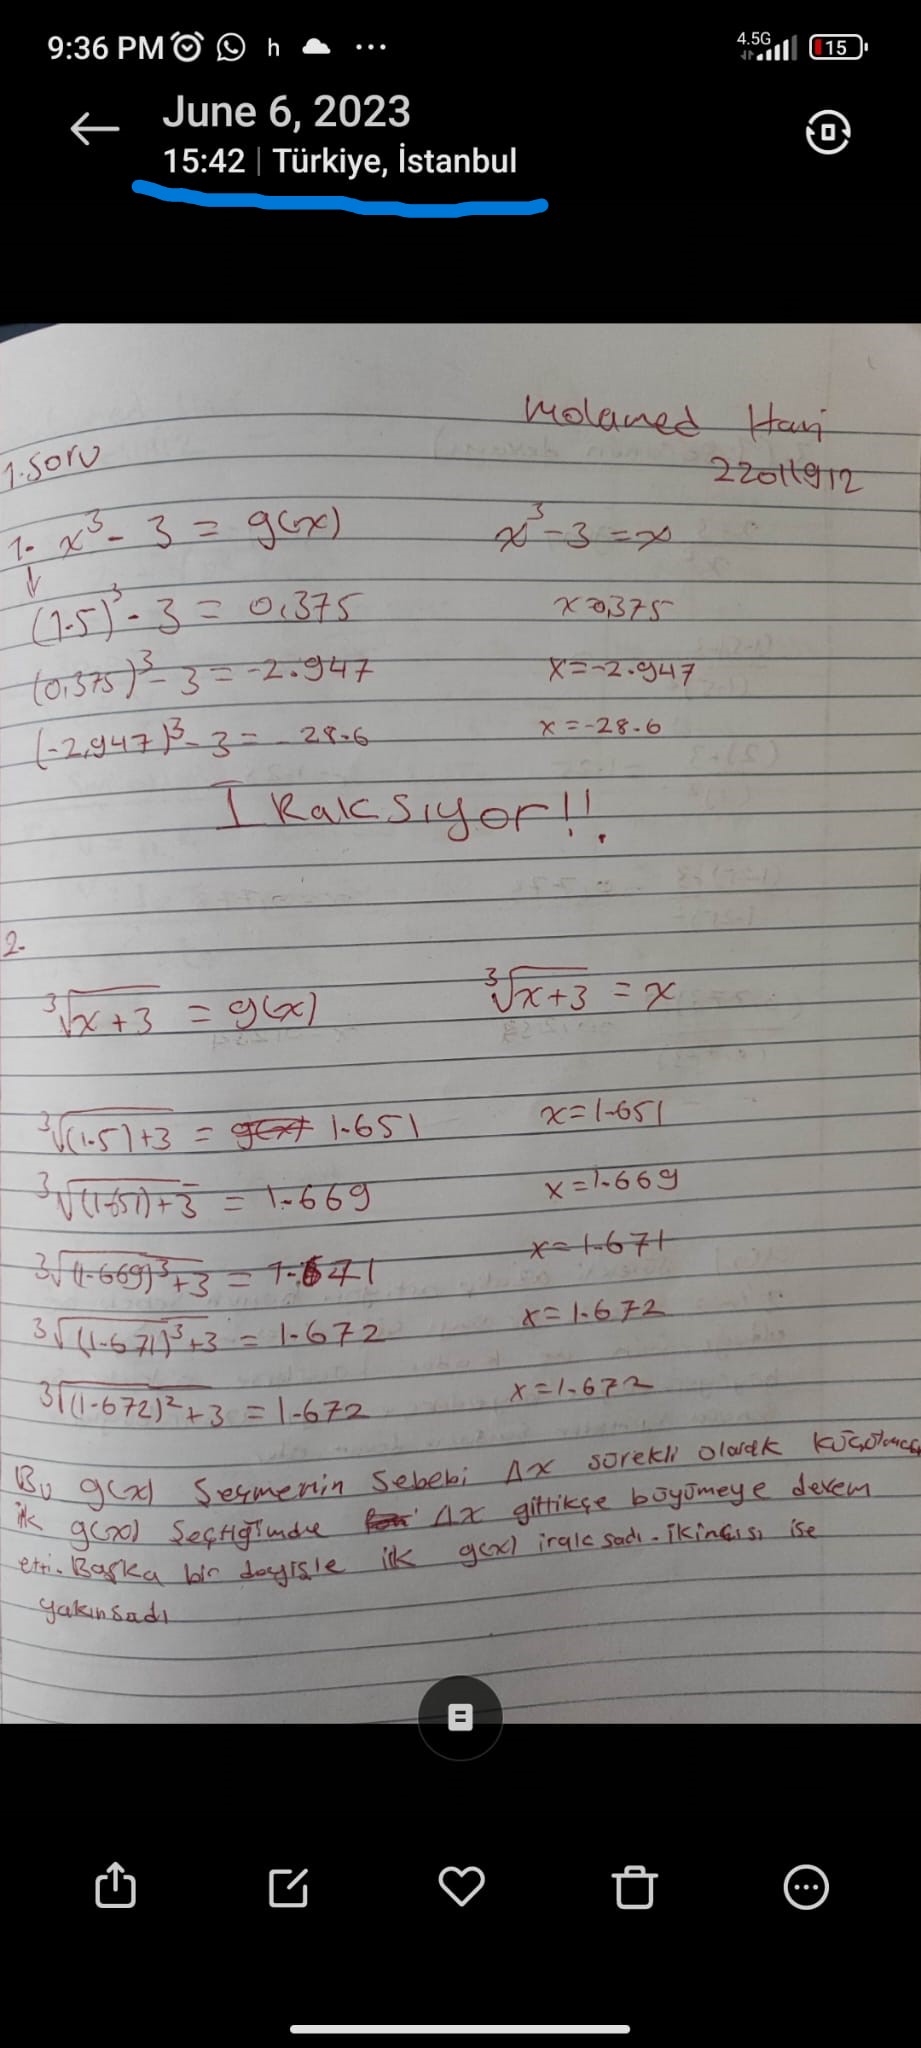 9:36 PM h ...
4.5G 15
June 6, 2023
15:42 | Türkiye, İstanbul
Molamed Hari
22011912
1.soru
1- x³ - 3 = g(x) x³ - 3 = x
(1.5)³ - 3 = 0,375 x=0,375
(0,375)³ - 3 = -2.947 x=-2.947
(-2,947)³ - 3 = -28.6 x=-28.6
Iraksıyor!!
2-
³√x+3 = g(x) ³√x+3 = x
³√(1.5)+3 = 1.651 x=1.651
³√(1.651)+3 = 1.669 x=1.669
³√(1.669)³+3 = 1.671 x=1.671
³√(1.671)³+3 = 1.672 x=1.672
³√(1.672)²+3 = 1.672 x=1.672
Bu g(x) Seçmenin Sebebi Δx sürekli olarak
ilk g(x) Seçtiğimde Δx gittikçe büyümeye devem
etti. Başka bir deyişle ilk g(x) iraksadı. ikincisi ise
yakınsadı